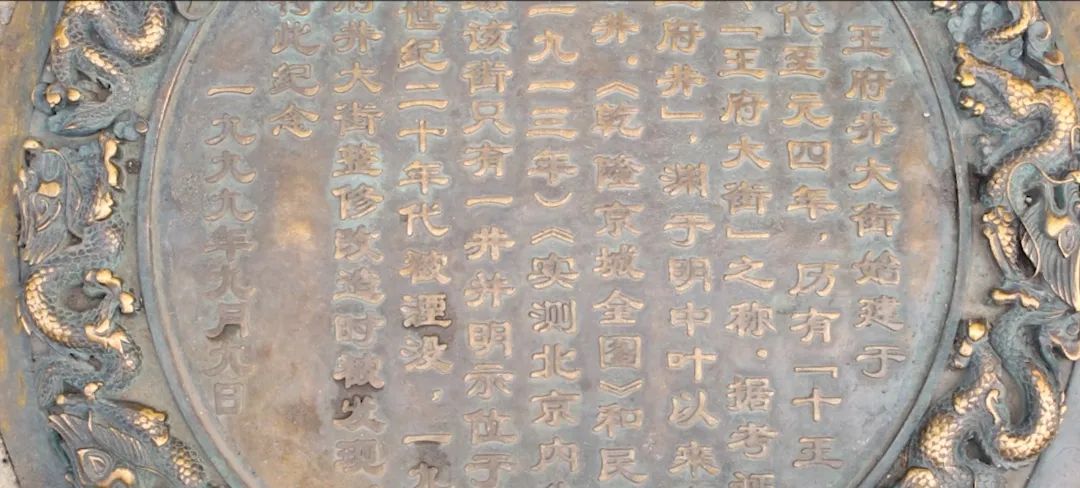 王府井大街始建于
代至元四年，历有「十王
「王府大街」之称．据考证
府井」，渊于明中叶以来
井．《乾隆京城全图》和民
一九一三年）《实测北京内
该街只有一井并明示位于
世纪二十年代被湮没，一九
府井大街整修改造时被发现
此纪念
一九九九年九月九日